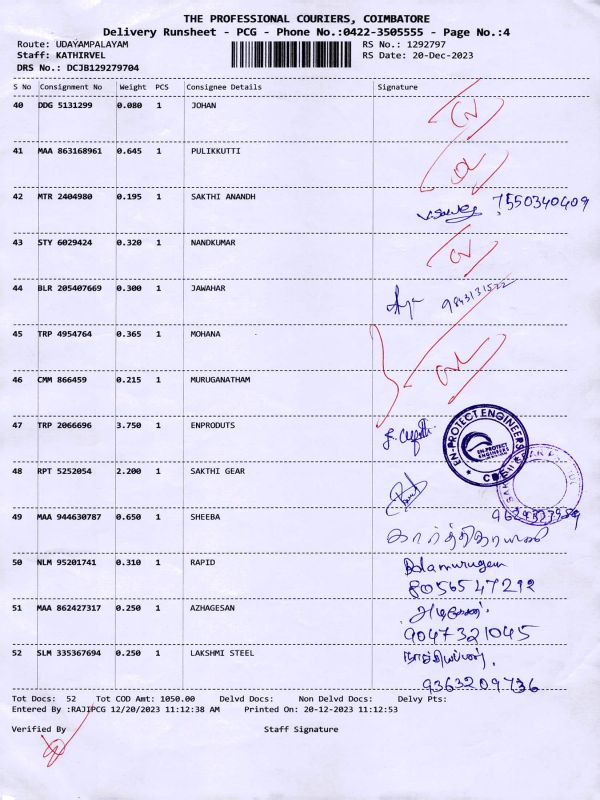 THE PROFESSIONAL COURIERS, COIMBATORE
Delivery Runsheet - PCG - Phone No.:0422-3505555 - Page No.:4
Route: UDAYAMPALAYAM RS No.: 1292797
Staff: KATHIRVEL RS Date: 20-Dec-2023
DRS No.: DCJB129279704
S No Consignment No Weight PCS Consignee Details Signature
40 DDG 5131299 0.080 1 JOHAN
41 MAA 863168961 0.645 1 PULIKKUTTI
42 MTR 2404980 0.195 1 SAKTHI ANANDH 7550340409
43 STY 6029424 0.320 1 NANDKUMAR
44 BLR 205407669 0.300 1 JAWAHAR
45 TRP 4954764 0.365 1 MOHANA
46 CMM 866459 0.215 1 MURUGANATHAM
47 TRP 2066696 3.750 1 ENPRODUTS
EN-PROTECT ENGINEERS
EN-PROTECT
ENGINEERS
48 RPT 5252054 2.200 1 SAKTHI GEAR
49 MAA 944630787 0.650 1 SHEEBA
50 NLM 95201741 0.310 1 RAPID Balamurugan
8056547292
51 MAA 862427317 0.250 1 AZHAGESAN
9047321045
52 SLM 335367694 0.250 1 LAKSHMI STEEL
9363209736
Tot Docs: 52 Tot COD Amt: 1050.00 Delvd Docs: Non Delvd Docs: Delvy Pts:
Entered By :RAJIPCG 12/20/2023 11:12:38 AM Printed On: 20-12-2023 11:12:53
Verified By Staff Signature